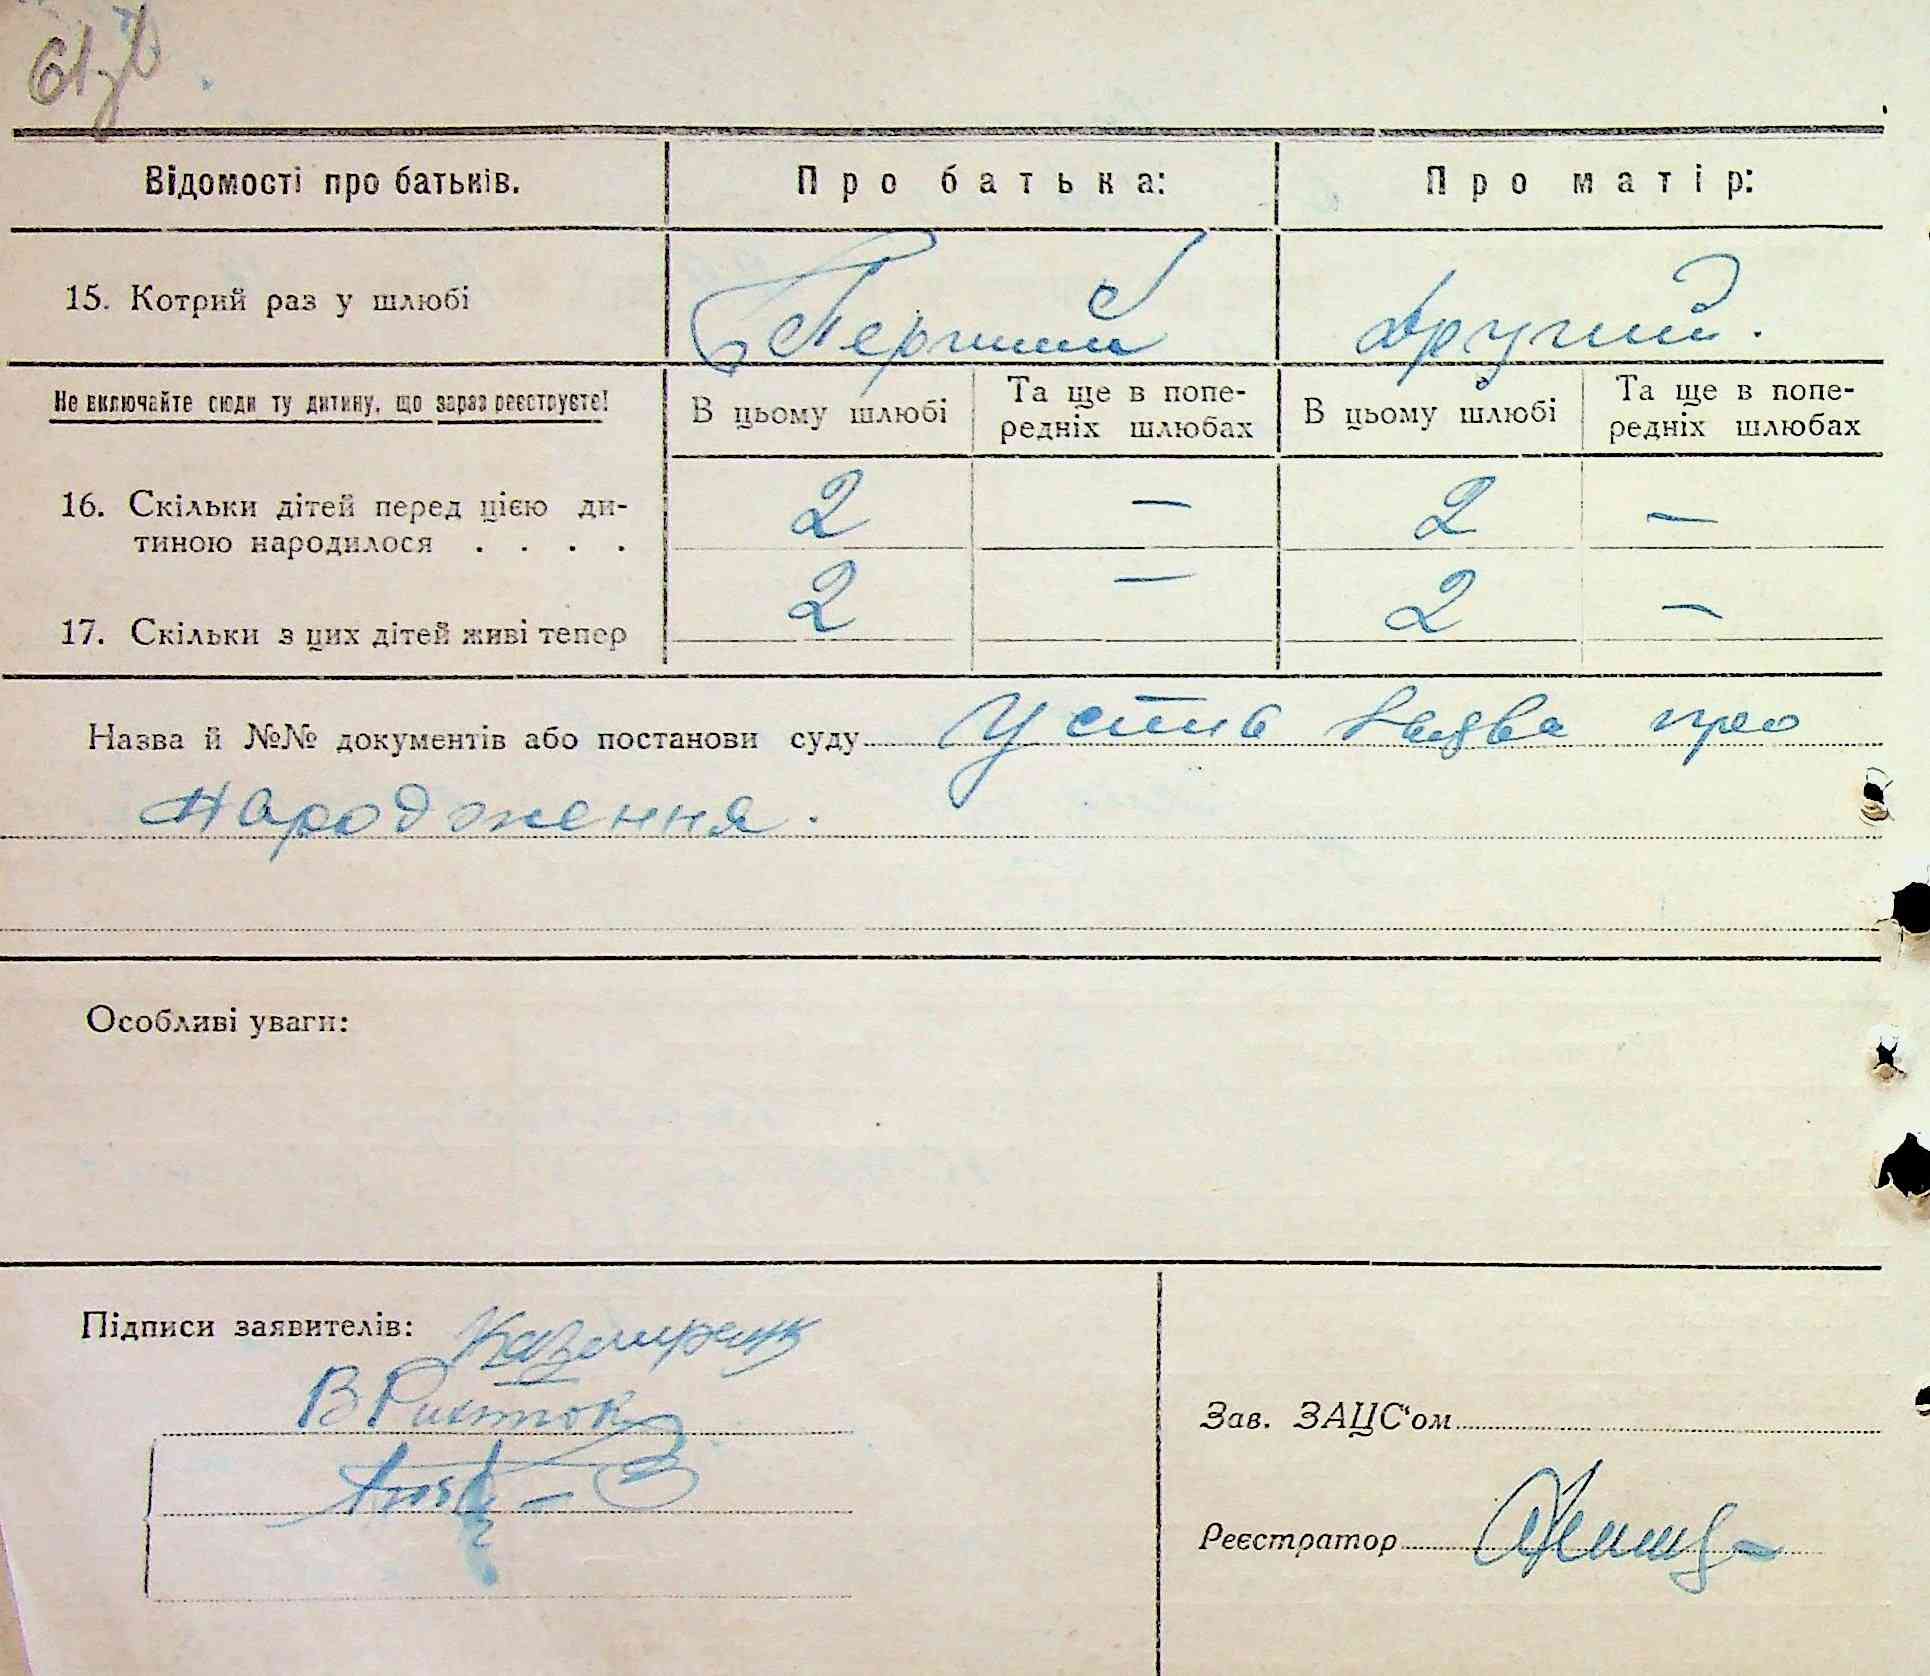 61зв
Відомості про батьків. Про батька: Про матір:
15. Котрий раз у шлюбі Перший другий.
Не включайте сюди ту дитину, що зараз реєструєте!
В цьому шлюбі Та ще в попе-
редніх шлюбах В цьому шлюбі Та ще в попе-
редніх шлюбах
16. Скільки дітей перед цією ди-
тиною народилося . . . . 2 — 2 —
17. Скільки з цих дітей живі тепер 2 — 2 —
Назва й №№ документів або постанови суду Устна заява про
народження.
Особливі уваги:
Підписи заявителів:
Зав. ЗАЦС‘ом
Реєстратор